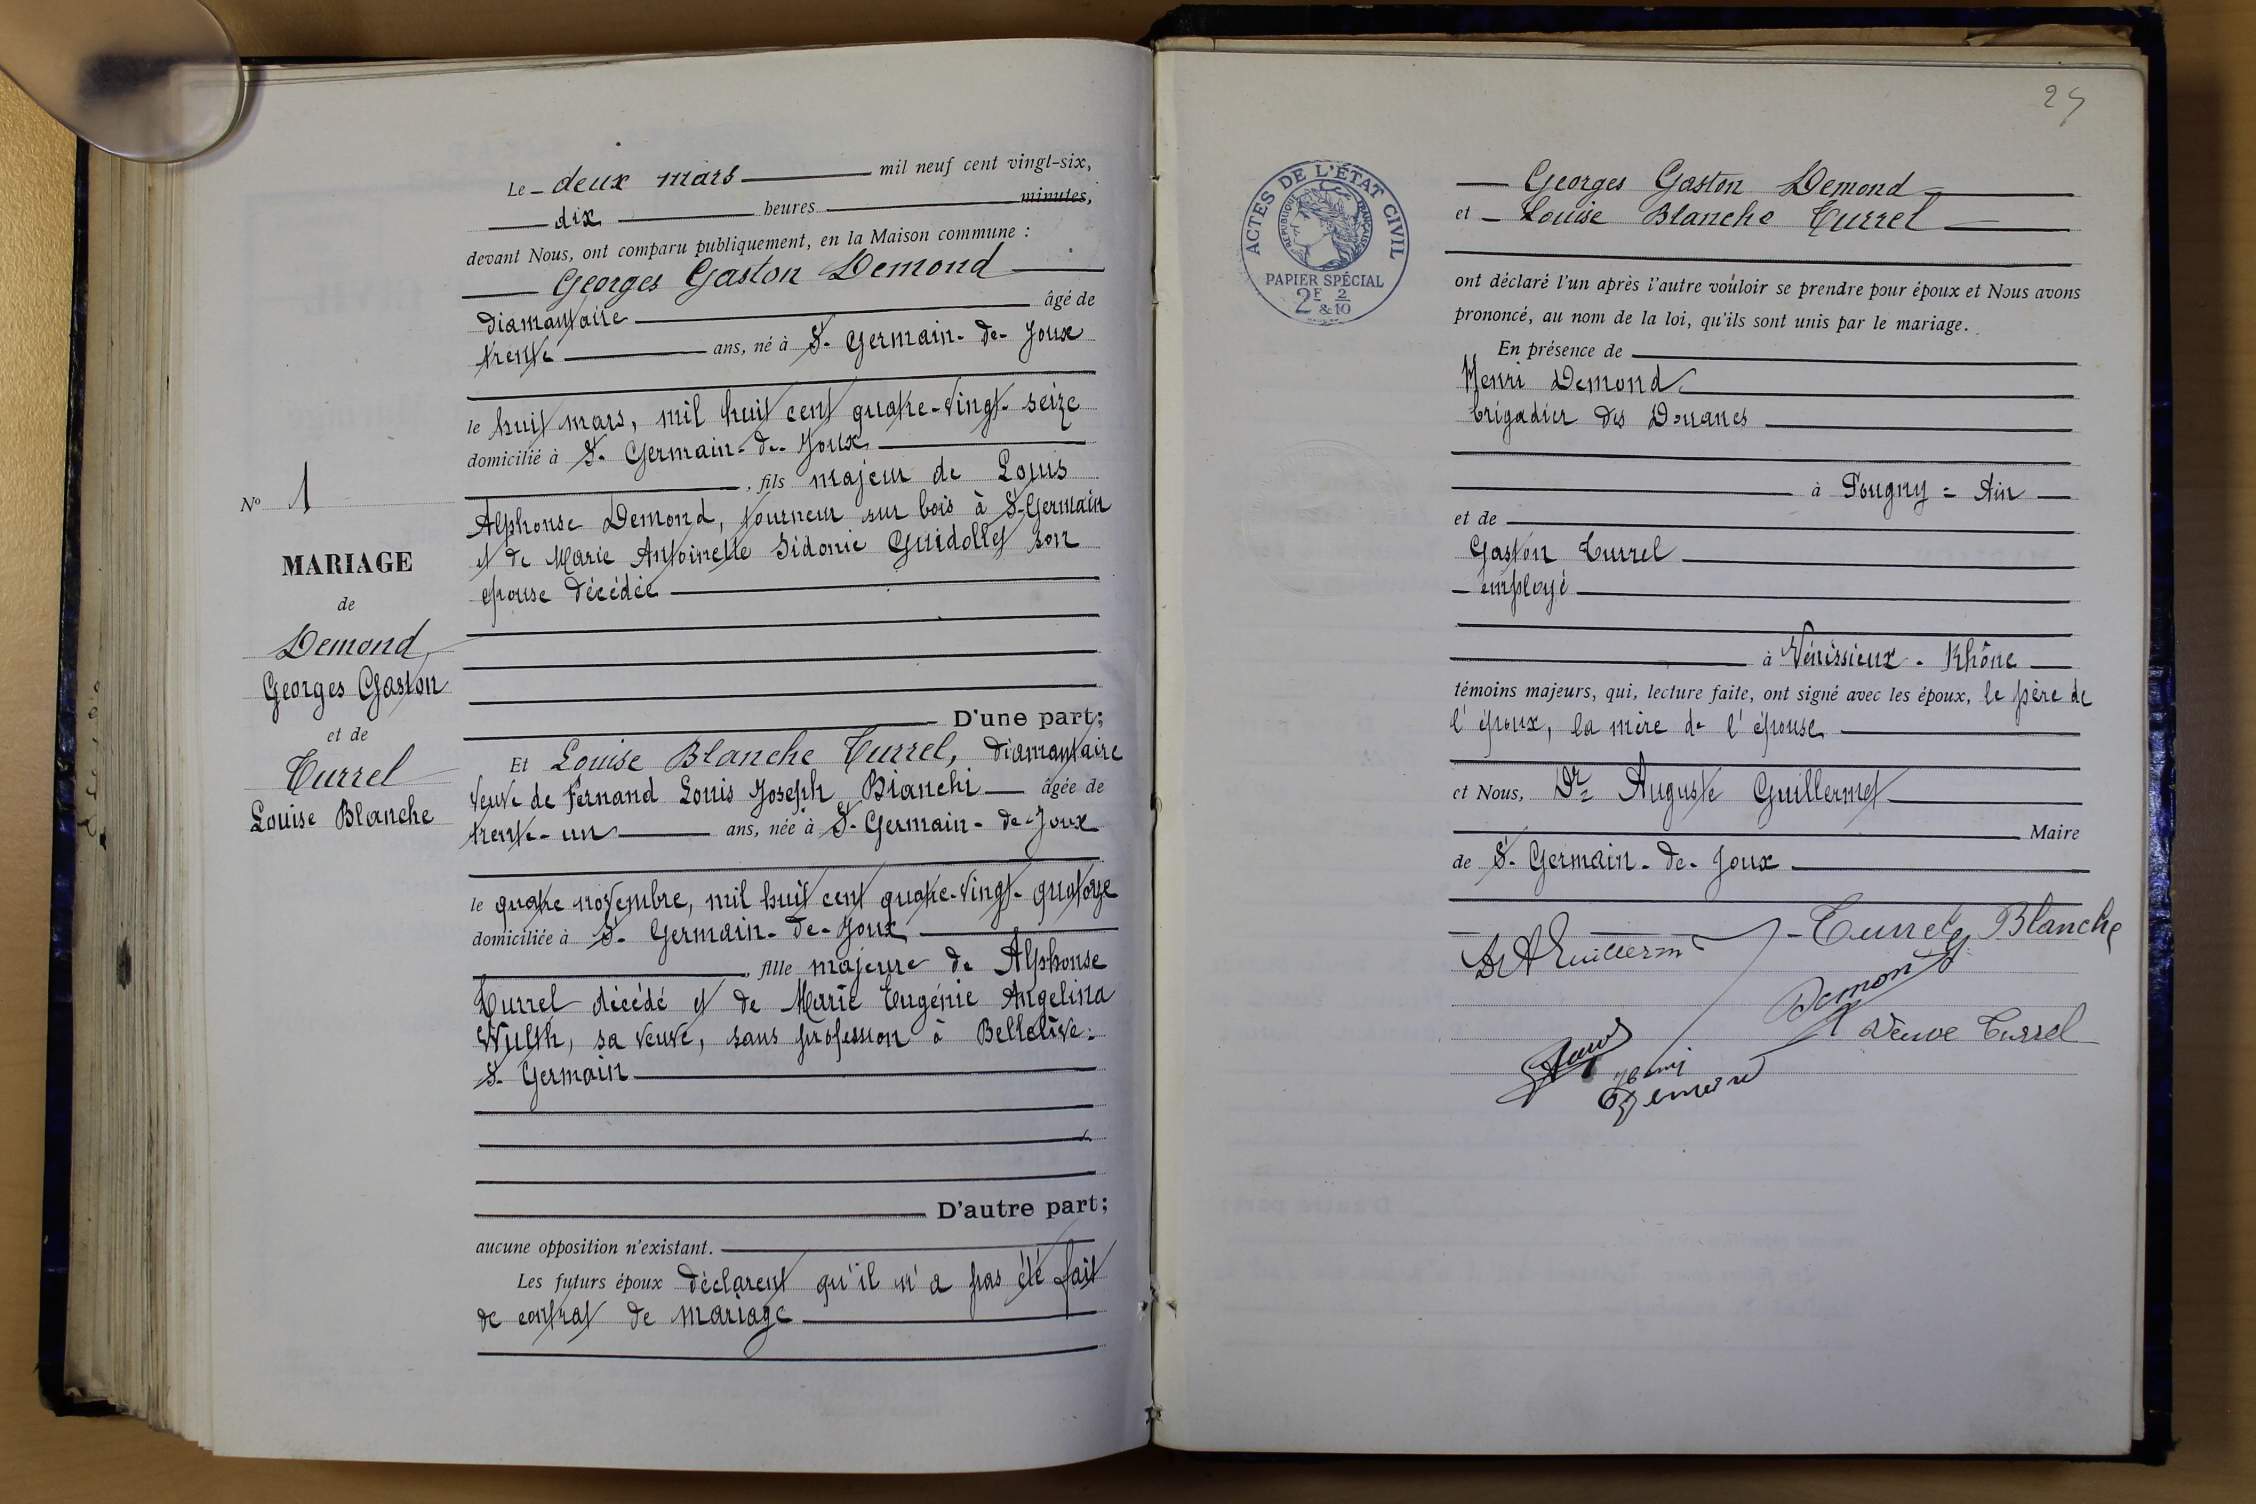 Le deux mars mil neuf cent vingt-six,
dix heures minutes,
devant Nous, ont comparu publiquement, en la Maison commune :
Georges Gaston Demond
diamantaire âgé de
trente ans, né à St-Germain-de-Joux
le huit mars, mil huit cent quatre-vingt-seize
domicilié à St-Germain-de-Joux
, fils majeur de Louis
Alphonse Demond, tourneur sur bois à St-Germain
et de Marie Antoinette Sidonie Guidollet son
épouse décédée
D'une part;
Et Louise Blanche Turrel, diamantaire
veuve de Fernand Louis Joseph Bianchi âgée de
trente-un ans, née à St-Germain-de-Joux
le quatre novembre, mil huit cent quatre-vingt-quatorze
domiciliée à St-Germain-de-Joux
, fille majeure de Alphonse
Turrel décédé et de Marie Eugénie Angelina
Wulth, sa veuve, sans profession à Bellerive-
St-Germain
D'autre part;
aucune opposition n'existant.
Les futurs époux déclarent qu'il n'a pas été fait
de contrat de mariage
No 1
MARIAGE
de
Demond
Georges Gaston
et de
Turrel
Louise Blanche
ACTES DE L'ÉTAT CIVIL
RÉPUBLIQUE FRANÇAISE
PAPIER SPÉCIAL
2F & 2/10
Georges Gaston Demond
et Louise Blanche Turrel
ont déclaré l'un après l'autre vouloir se prendre pour époux et Nous avons
prononcé, au nom de la loi, qu'ils sont unis par le mariage.
En présence de
Henri Demond
brigadier des Douanes
à Pougny = Ain
et de
Gaston Turrel
employé
à Vénissieux - Rhône
témoins majeurs, qui, lecture faite, ont signé avec les époux, le père de
l'époux, la mère de l'épouse
et Nous, Dr Auguste Guillermet
Maire
de St-Germain-de-Joux
Turrel Blanche
Dr A Guillermet
Demond
Veuve Turrel
Henri
Demond